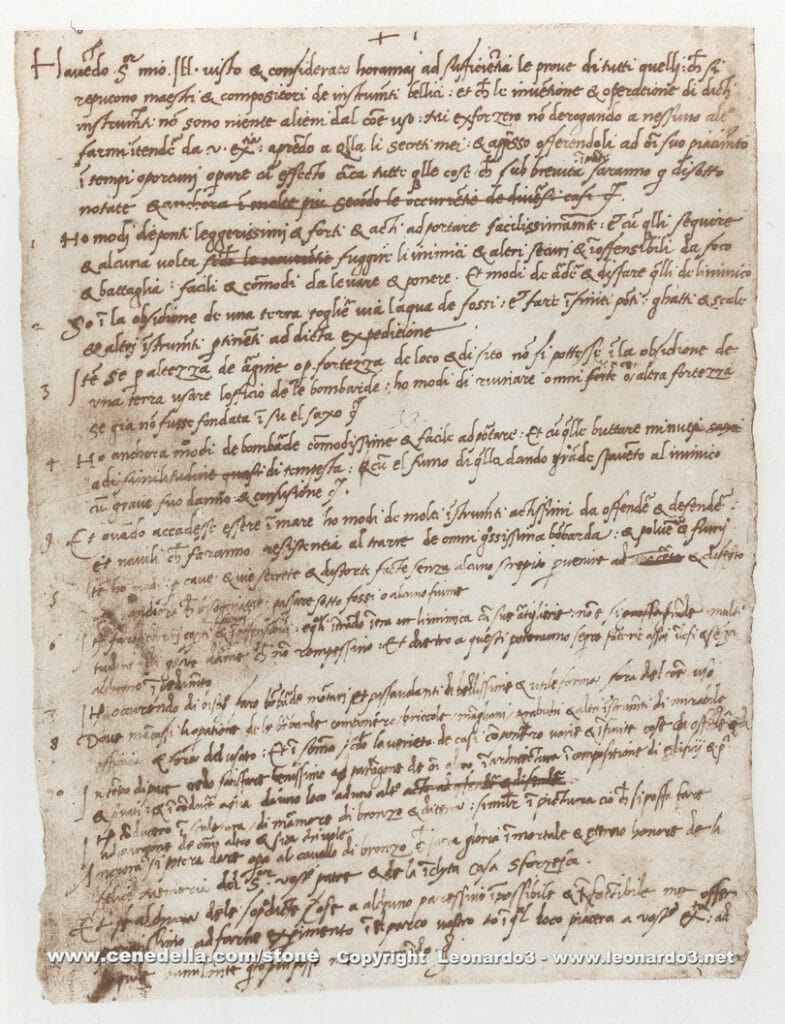 Havẽdo S.or mio Ill. visto & considerato horamaj ad sufficiẽtia le prove di tutti quelli ch̃ si
reputono maestri & compositori de instrumẽti bellici: et ch̃ le inventione & operatione di dicti
instrumẽti nõ sono niente alieni dal cõe uso: Mi exforzerò nõ derogando a nessuno
farmi ĩtendẽ da v. exª: aprẽdo a q̃lla li secreti mei: & app̃sso offerendoli ad õi suo piacimẽto
ĩ tempi oportunj operare cũ effecto circa tutte q̃lle cose ch̃ sub brevità saranno q̃ disotto
notate & anchora ĩ molte più secõdo le occurrentie de diversi casi
Ho modi de ponti leggerissimj & forti & acti ad portare facilissimamẽte: et cũ q̃lli seguire
& alcuna volta fuggire li inimici & altri securi & ĩoffensibili da foco
& battaglia: facili & cõmodi da levare & ponere. Et modi de ardẽ & disfare q̃lli de linimico
2 So ĩ la obsidione de una terra togliẽ via laqua de fossi: et fare ĩfiniti põti ghatti & scale
& altrj ĩstrumẽti p̃tinẽti ad dicta expeditione
3 Itẽ se p̃ altezza de argine o p̃ fortezza de loco & di sito nõ si pottesse ĩ la obsidione de
una terra usare lofficio de le bombarde: ho modi di ruinare omni forte o altra fortezza
se già nõ fusse fondata ĩ su el saxo
4 Ho anchora modi de bombarde cõmodissime & facile ad portare: Et cũ q̃lle buttare minuti saxi
a di similitudine quasi di tempesta: & cũ el fumo di q̃lla dando grãde spavẽto al inimico
cũ grave suo danno & confusione
9 Et quãdo accadesse essere ĩ mare ho modi de molti ĩstrumẽti actissimi da offendẽ & defendẽ:
et navili ch̃ faranno resistentia al trarre de omni grossissima bõbarda: & polvere & fumi
5 Itẽ ho modi p̃ cave & vie secrete & distorte facte senza alcuno strepito p̃venire ad & disegnato
anchora ch̃ bisognasse pasare sotto fossi o alcuno fiume
6 Itẽ farò carri coperti & ĩoffensibili: e quali ĩtrãdo ĩtra li inimica cũ sue artiglierie: nõ è si grãde multi
tudine di gẽte darme ch̃ nõ rompessino: Et dietro a questi poteranno seguire fanterie assai illesi & senza
alchuno ĩpedimẽto
7 Itẽ occurrendo di bisogno farò bõbarde mortari et passavolanti di bellissime & utile forme fora del cõe uso
8 Dove mãcassi la opatione de le bõbarde componerò briccole manghani trabuchi & altri ĩstrumẽti di mirabile
efficacia & fora del usato: Et ĩ sõma secõdo la varietà de casi componerò varie & ĩfinite cose da offendẽ & di
10 In tẽpo di pace credo satisfare benissimo ad paragone de õni altro ĩ architectura ĩ compositione di edificij & pu
& privati: & ĩ conducẽ aqua da uno loco ad uno altro acto ad offendẽ & difendẽ
Itẽ conducerò ĩ sculptura di marmore di bronzo & di terra: similr ĩ pictura ciò ch̃ si possa fare
ad paragone de omni altro & sia chi vole
Anchora si poterà dare opa al cavallo di bronzo ch̃ sarà gloria ĩmortale & eterno honore de la
felice memoria del S.or vostro patre & de la ĩclyta casa Sforzesca
Et se alchuna de le sopra dicte cose a alchuno paressino ĩpossibile & ĩfactibile me offero
paratissimo ad farne experimento ĩ el parco vostro o ĩ qual loco piacerà a vostra Ex.: ad
la quale humilmente
www.cenedella.com/stone Copyright Leonardo3 - www.leonardo3.net